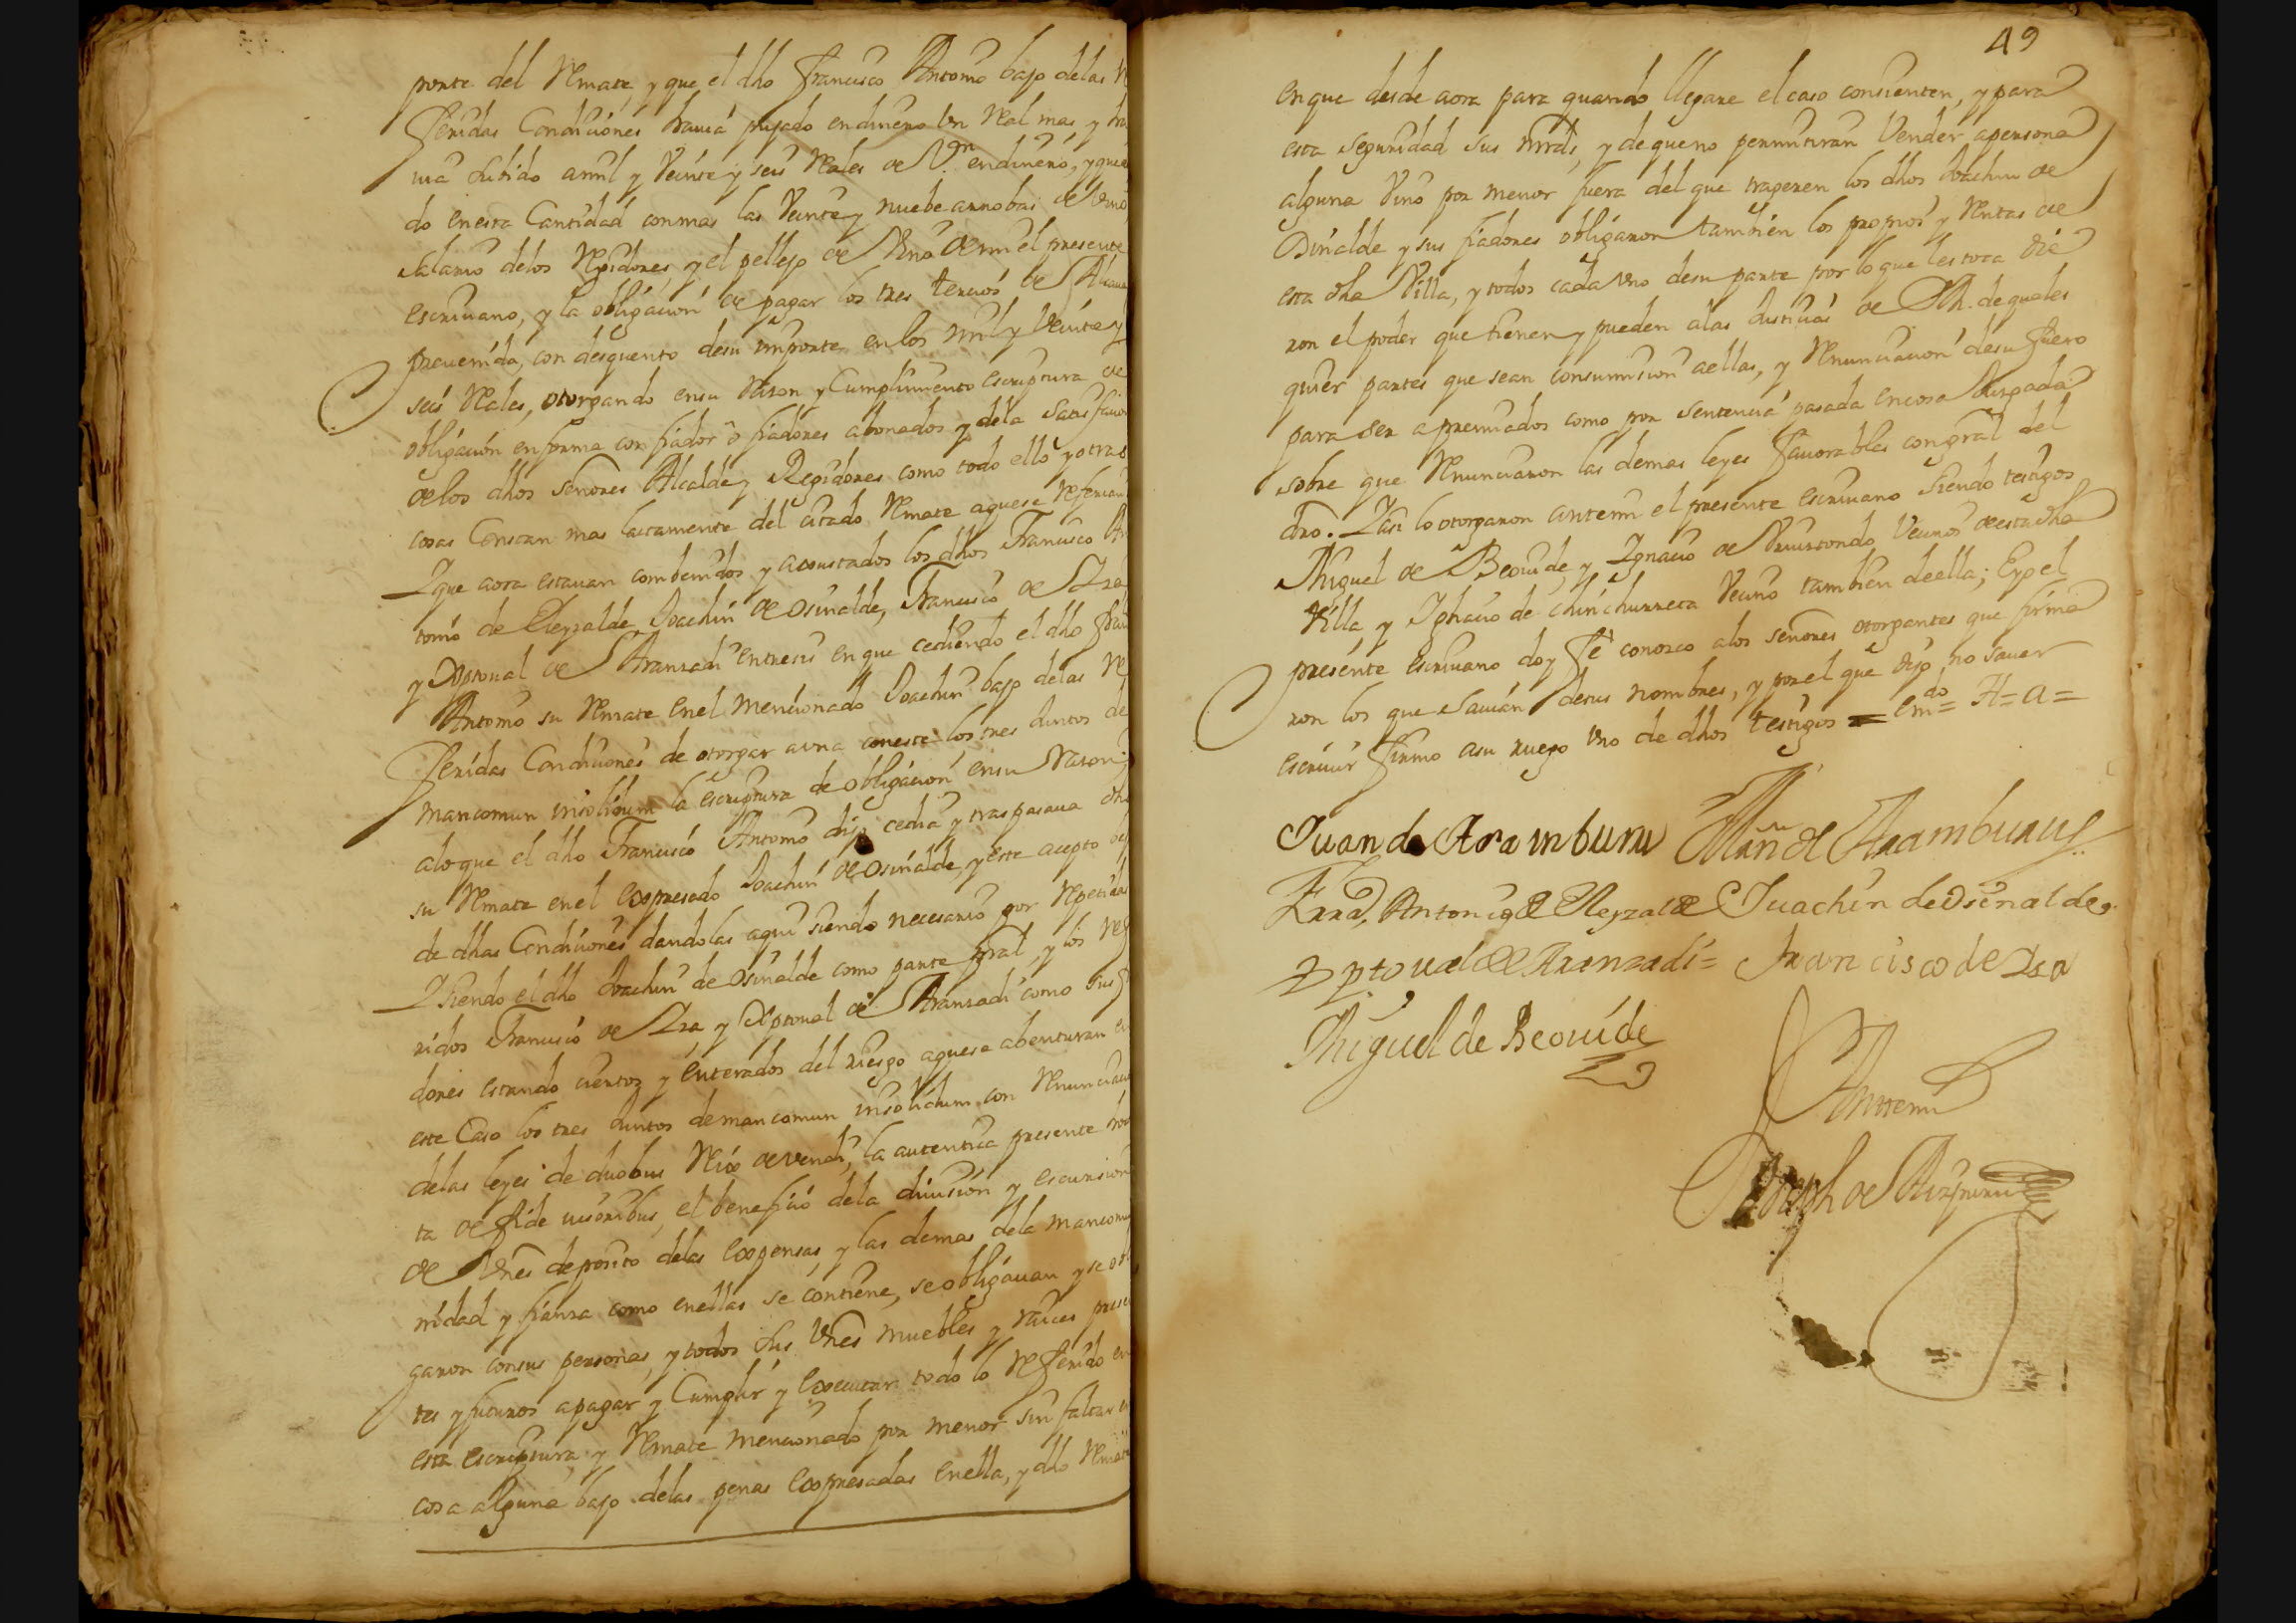 ponte del Rmate, y que el dho Francisco Antonio bajo delas R
feridas Condiciones hauia pujado endinero Un Real mas y ha
uia subido amil y Veinte y seis Reales de Vn endinero, y queda
do enesta Cantidad conmas las Veinte y nuebe arrobas de Vino
salario delos Rexidores y el pellejo de Vino de mi el presente
escriuano, y la obligacion de pagar los tres tercios de Alcaua
preuenida, con desquento desu importe enlos mil y Veinte y
seis Reales, otorgando ensu Razon y Cumplimiento escriptura de
obligacion enforma con fiador o fiadores abonados y dela satisfacion
delos dhos señores Alcalde y Regidores como todo ello y otras
cosas Constan mas lactamente del citado Rmate aquese Referian
Y que aora estauan combenidos y acoustados los dhos Francisco An
tonio de Eleyzalde Joachin de Osinalde, Francisco de Yza
y Xptoual de Aranzadi entresi en que cediendo el dho Fran
Antonio su Rmate enel mencionado Joachin bajo delas Re
feridas Condiciones de otorgar auna coneste los tres Juntos de
mancomun insolidum la escriptura de obligacion ensu Razon;
aloque el dho Francisco Antonio dijo cedia y traspasaua dho
su Rmate enel expresado Joachin de Osinalde, y este acepto
de dhas Condiciones dandolas aqui siendo necesario por Repetidas
Y siendo el dho Joachin de Osinalde como parte pral, y los Refe
ridos Francisco de Yza, y Xptoual de Aranzadi como sus f
dores estando ciertos y enterados del riesgo aquese abenturan en
este Caso los tres Juntos demancomun insolidum con Renunciacion
delas leyes de duobus Reix devendi, la autentica presente
ta de fide iusoribus, el beneficio dela diuision y escursion
de Vnes deposito delas expensas, y las demas dela mancomu
nidad y fianza como enellas se contiene, se obligauan y se obli
garon consus personas, y todos sus Vnes muebles y raices presen
tes y futuros apagar y Cumplir y Executar todo lo Referido en
esta escriptura y Rmate mencionado por menor sin faltar en
cosa alguna bajo delas penas Expresadas enella, y dho Rmate
49
enque desde aora para quando llegare el caso consienten, y para
esta seguridad sus mrds, y dequeno permitiran Vender apersona
alguna Vino por menor fuera del que trageren los dhos Joachin de
Osinalde y sus fiadores obligaron tambien los propios y Rentas de
esta dha Villa, y todos cada vno desu parte por lo que les toca die
ron el poder que tienen y pueden alas Justicias de S.M. dequales
quier partes que sean consumision aellas, y Renunciacion desu fuero
para ser apremiados como por sentencia pasada encosa Juzgada
sobre que Renunciaron las demas leyes fauorables congral del
dro. Yasi lo otorgaron antemi el presente escriuano siendo testigos
Miguel de Beouide, y Ygnacio de Vecinos deesta dha
Villa, y Ignacio de Chinchurreta Vecino tambien deella; Eyo el
presente escriuano doy fe conozco alos señores otorgantes que firma
ron los que sauian desus nombres, y porel que dijo no sauer
escriuir firmo asu ruego vno de dhos testigos = emdo = H = a =
Juan de Aramburu Mrn de Aramburu
Franco Antonio de Eleyzalde Juachin de Osinalde
Xptoual de Aranzadi = Francisco de Yza
Miguel de Beouide
Antemi
Joseph de Aizpuru